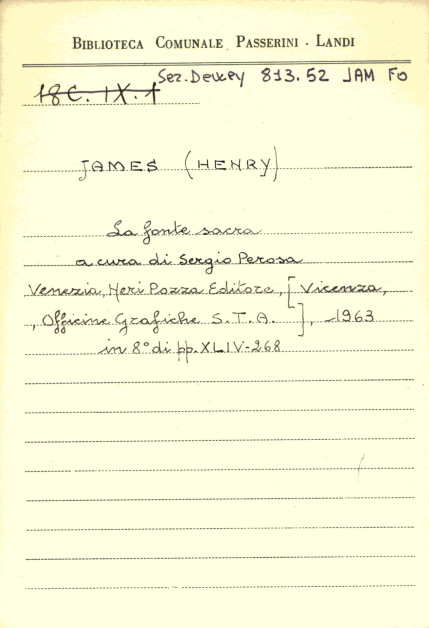 BIBLIOTECA COMUNALE PASSERINI - LANDI
Sez. Dewey 813.52 JAM FO
18C. IX. 1
JAMES (HENRY)
La fonte sacra
a cura di Sergio Perosa
Venezia, Neri Pozza Editore, [Vicenza,
, Officine Grafiche S.T.A.], 1963
in 8° di pp. XLIV-268